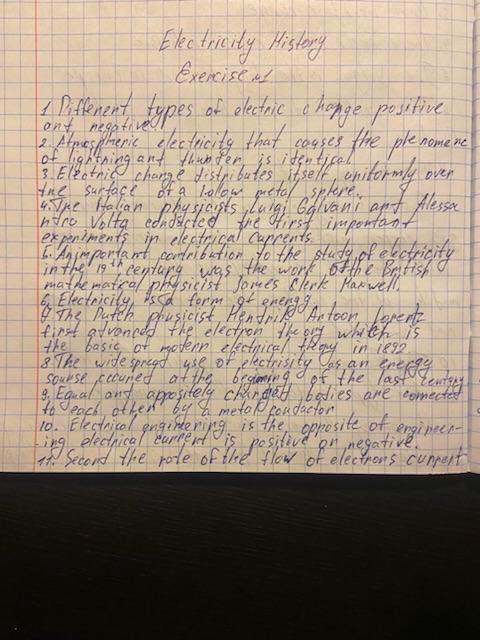 Electricity History
Exercise №1
1. Different types of electric change positive
ant negative.
2. Atmospheric electricity that causes the phenomene
of lightning ant thunter is identical
3. Electric change distributes itself uniformly over
the surface of a hollow metal sphere.
4. The Italian physicists Luigi Galvani ant Alessa
ntro Volta conducted the first important
experiments in electrical currents.
5. An important contribution to the study of electricity
in the 19th century was the work of the British
mathematical physicist James Clerk Maxwell.
6. Electricity is a form of energy.
7. The Dutch phusicist Hendrik Antoon Lorentz
first advanced the electron theory which is
the basic of motern electrical theory in 1892
8. The widespread use of electrisity as an energy
sourse occured at the beginning of the last century
9. Equal ant oppsitely charged bodies are connected
to each othen by a metal conductor
10. Electrical engineering is the opposite of engineer-
ing electrical current is positive or negative.
11. Second the rate of the flow of electrons current